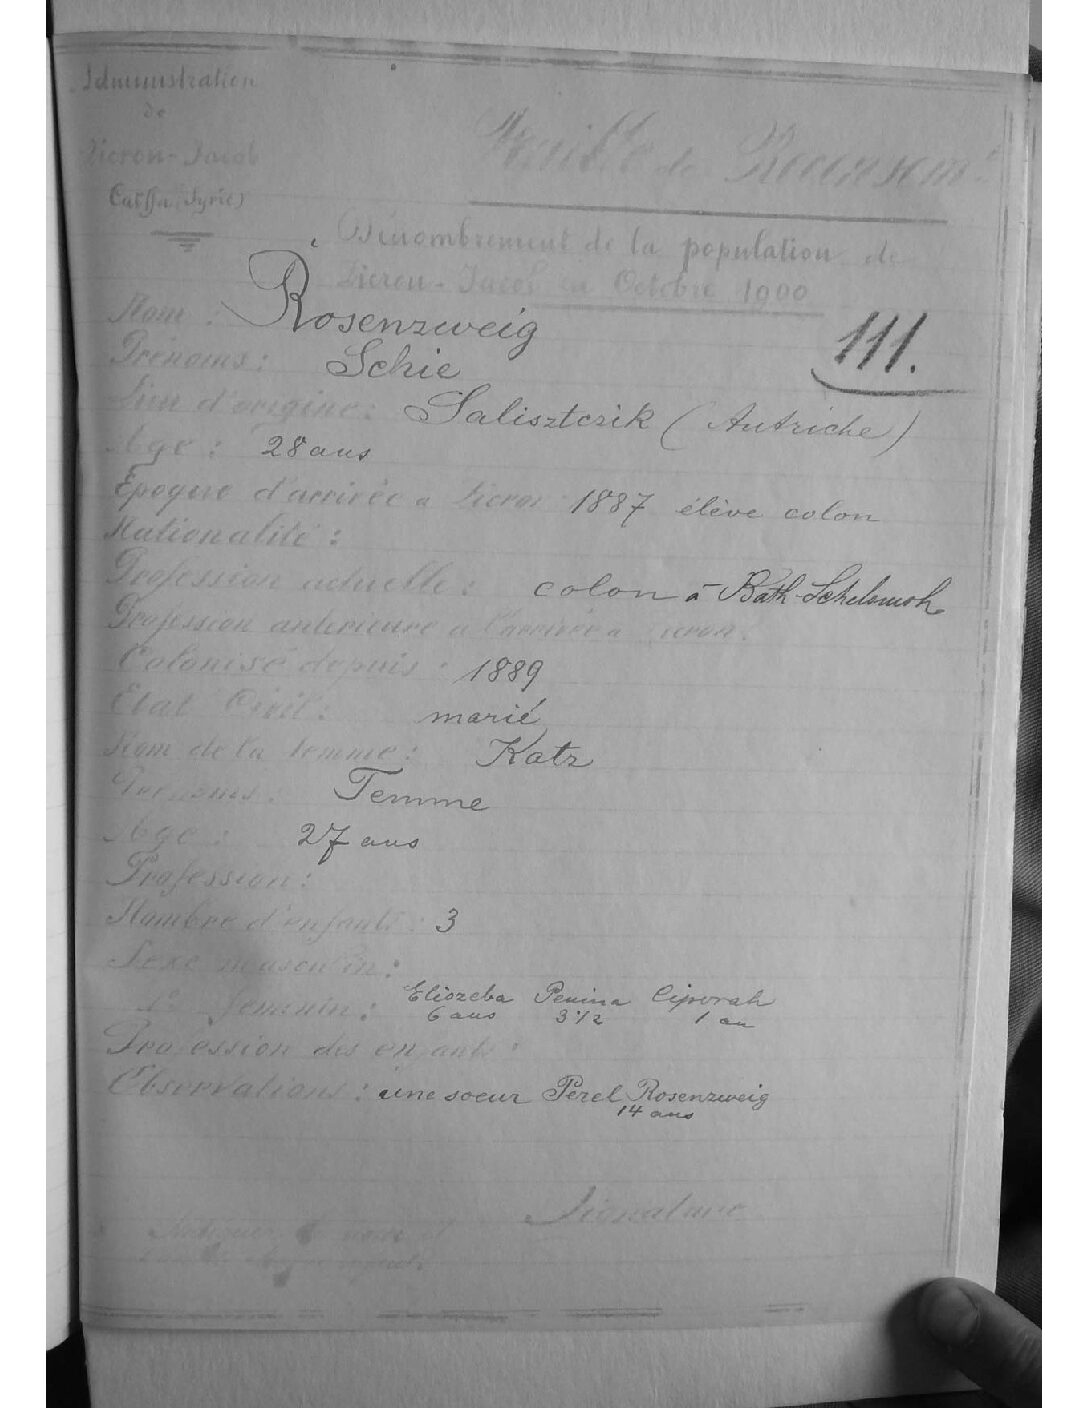 Administration
de
Zicron-Jacob
Caïffa (Syrie)
Feuille de Recensemt
Dénombrement de la population de
Zicron-Jacob en Octobre 1900
111.
Nom : Rosenzweig
Prénoms : Schie
Lieu d'origine : Saliszterik (Autriche)
Age : 28 ans
Epoque d'arrivée a Zicron 1887 élève colon
Nationalité :
Profession actuelle : colon à Bath-Schelomoh
Profession antérieure a l'arrivée a Zicron.
Colonisé depuis : 1889
Etat Civil : marié
Nom de la femme : Katz
Prénoms : Temme
Age : 27 ans
Profession :
Nombre d'enfants : 3
Sexe masculin :
d° feminin : Eliszeba Penina Ciporah
6 ans 3 1/2 1 an
Profession des enfants :
Observations : une soeur Perel Rosenzweig
14 ans
Signature